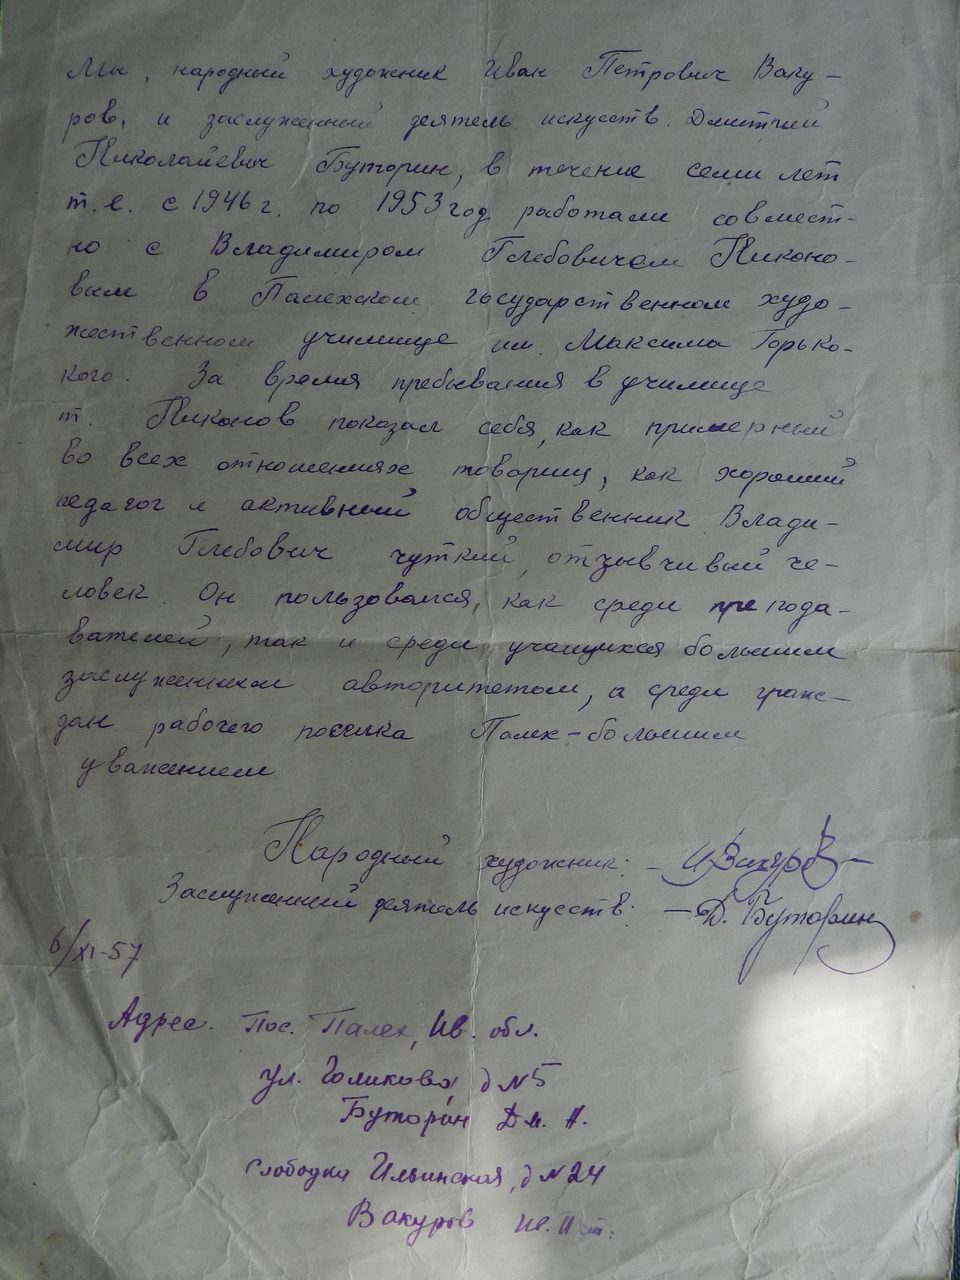 Мы, народный художник Иван Петрович Ваку-
ров, и заслуженный деятель искусств. Дмитрий
Николаевич Буторин, в течение семи лет
т.е. с 1946 г. по 1953 год работали совмест-
но с Владимиром Глебовичем Никоно-
вым в Палехском государственном худо-
жественном училище им. Максима Горько-
кого. За время пребывания в училище
т. Никонов показал себя, как примерный
во всех отношениях товарищ, как хороший
педагог и активный общественник. Влади-
мир Глебович чуткий, отзывчивый че-
ловек. Он пользовался, как среди препода-
вателей, так и среди учащихся большим
заслуженным авторитетом, а среди граж-
дан рабочего поселка Палех - большим
уважением
Народный художник: - И Вакуров -
Заслуженный деятель искусств: - Д. Буторин
6/XI-57
Адрес. Пос. Палех, Ив. обл.
ул. Голикова д N 5
Буторин Дм. Н.
Слободка Ильинская, д N 24
Вакуров Ив. Пет.